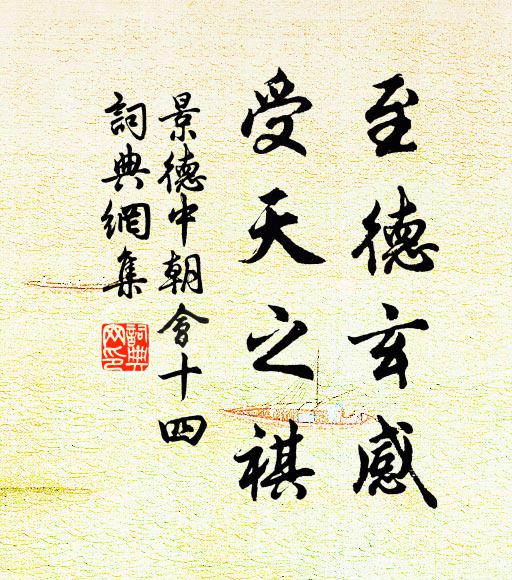 至德玄感
受天之祺
景德中朝會十四
詞典網集
詞典網印